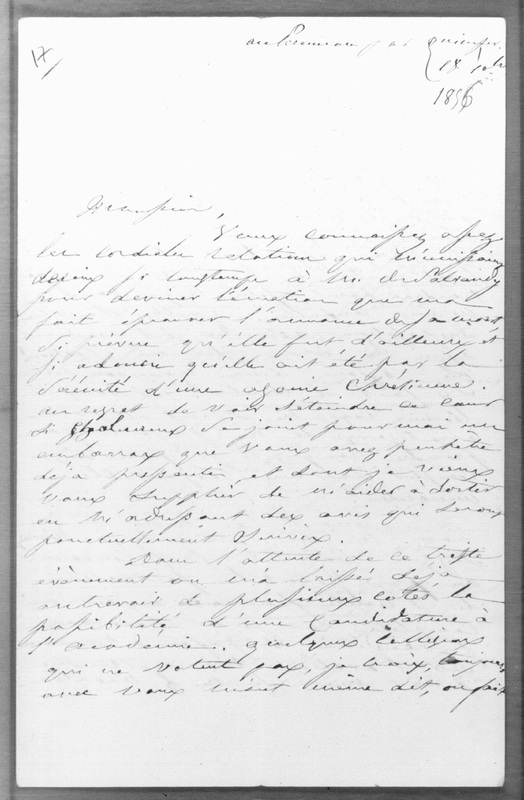 au Perennou par quimper
18 xbre
1856
Monsieur,
Vous connaissez assez
les cordiales relations qui m'unissaient
depuis si longtemps à Mr. de Salvandy
pour deviner l'émotion que m'a
fait éprouver l'annonce de sa mort
si prévue qu'elle fut d'ailleurs et
si adoucie qu'elle ait été par la
sérénité d'une agonie Chrétienne.
au regret de voir s'éteindre ce cœur
si chaleureux se joint pour moi un
embarras que vous avez peut être
déja pressenti, et dont je viens
vous supplier de m'aider à sortir
en m'adressant des avis qui seront
ponctuellement suivis.
Dans l'attente de ce triste
évènement on m'a laissé déjà
entrevoir de plusieurs cotés la
possibilité d'une Candidature à
l'académie.. quelques
qui ne votent pas, je crois, toujours
avec vous m'ont même dit, ou fait